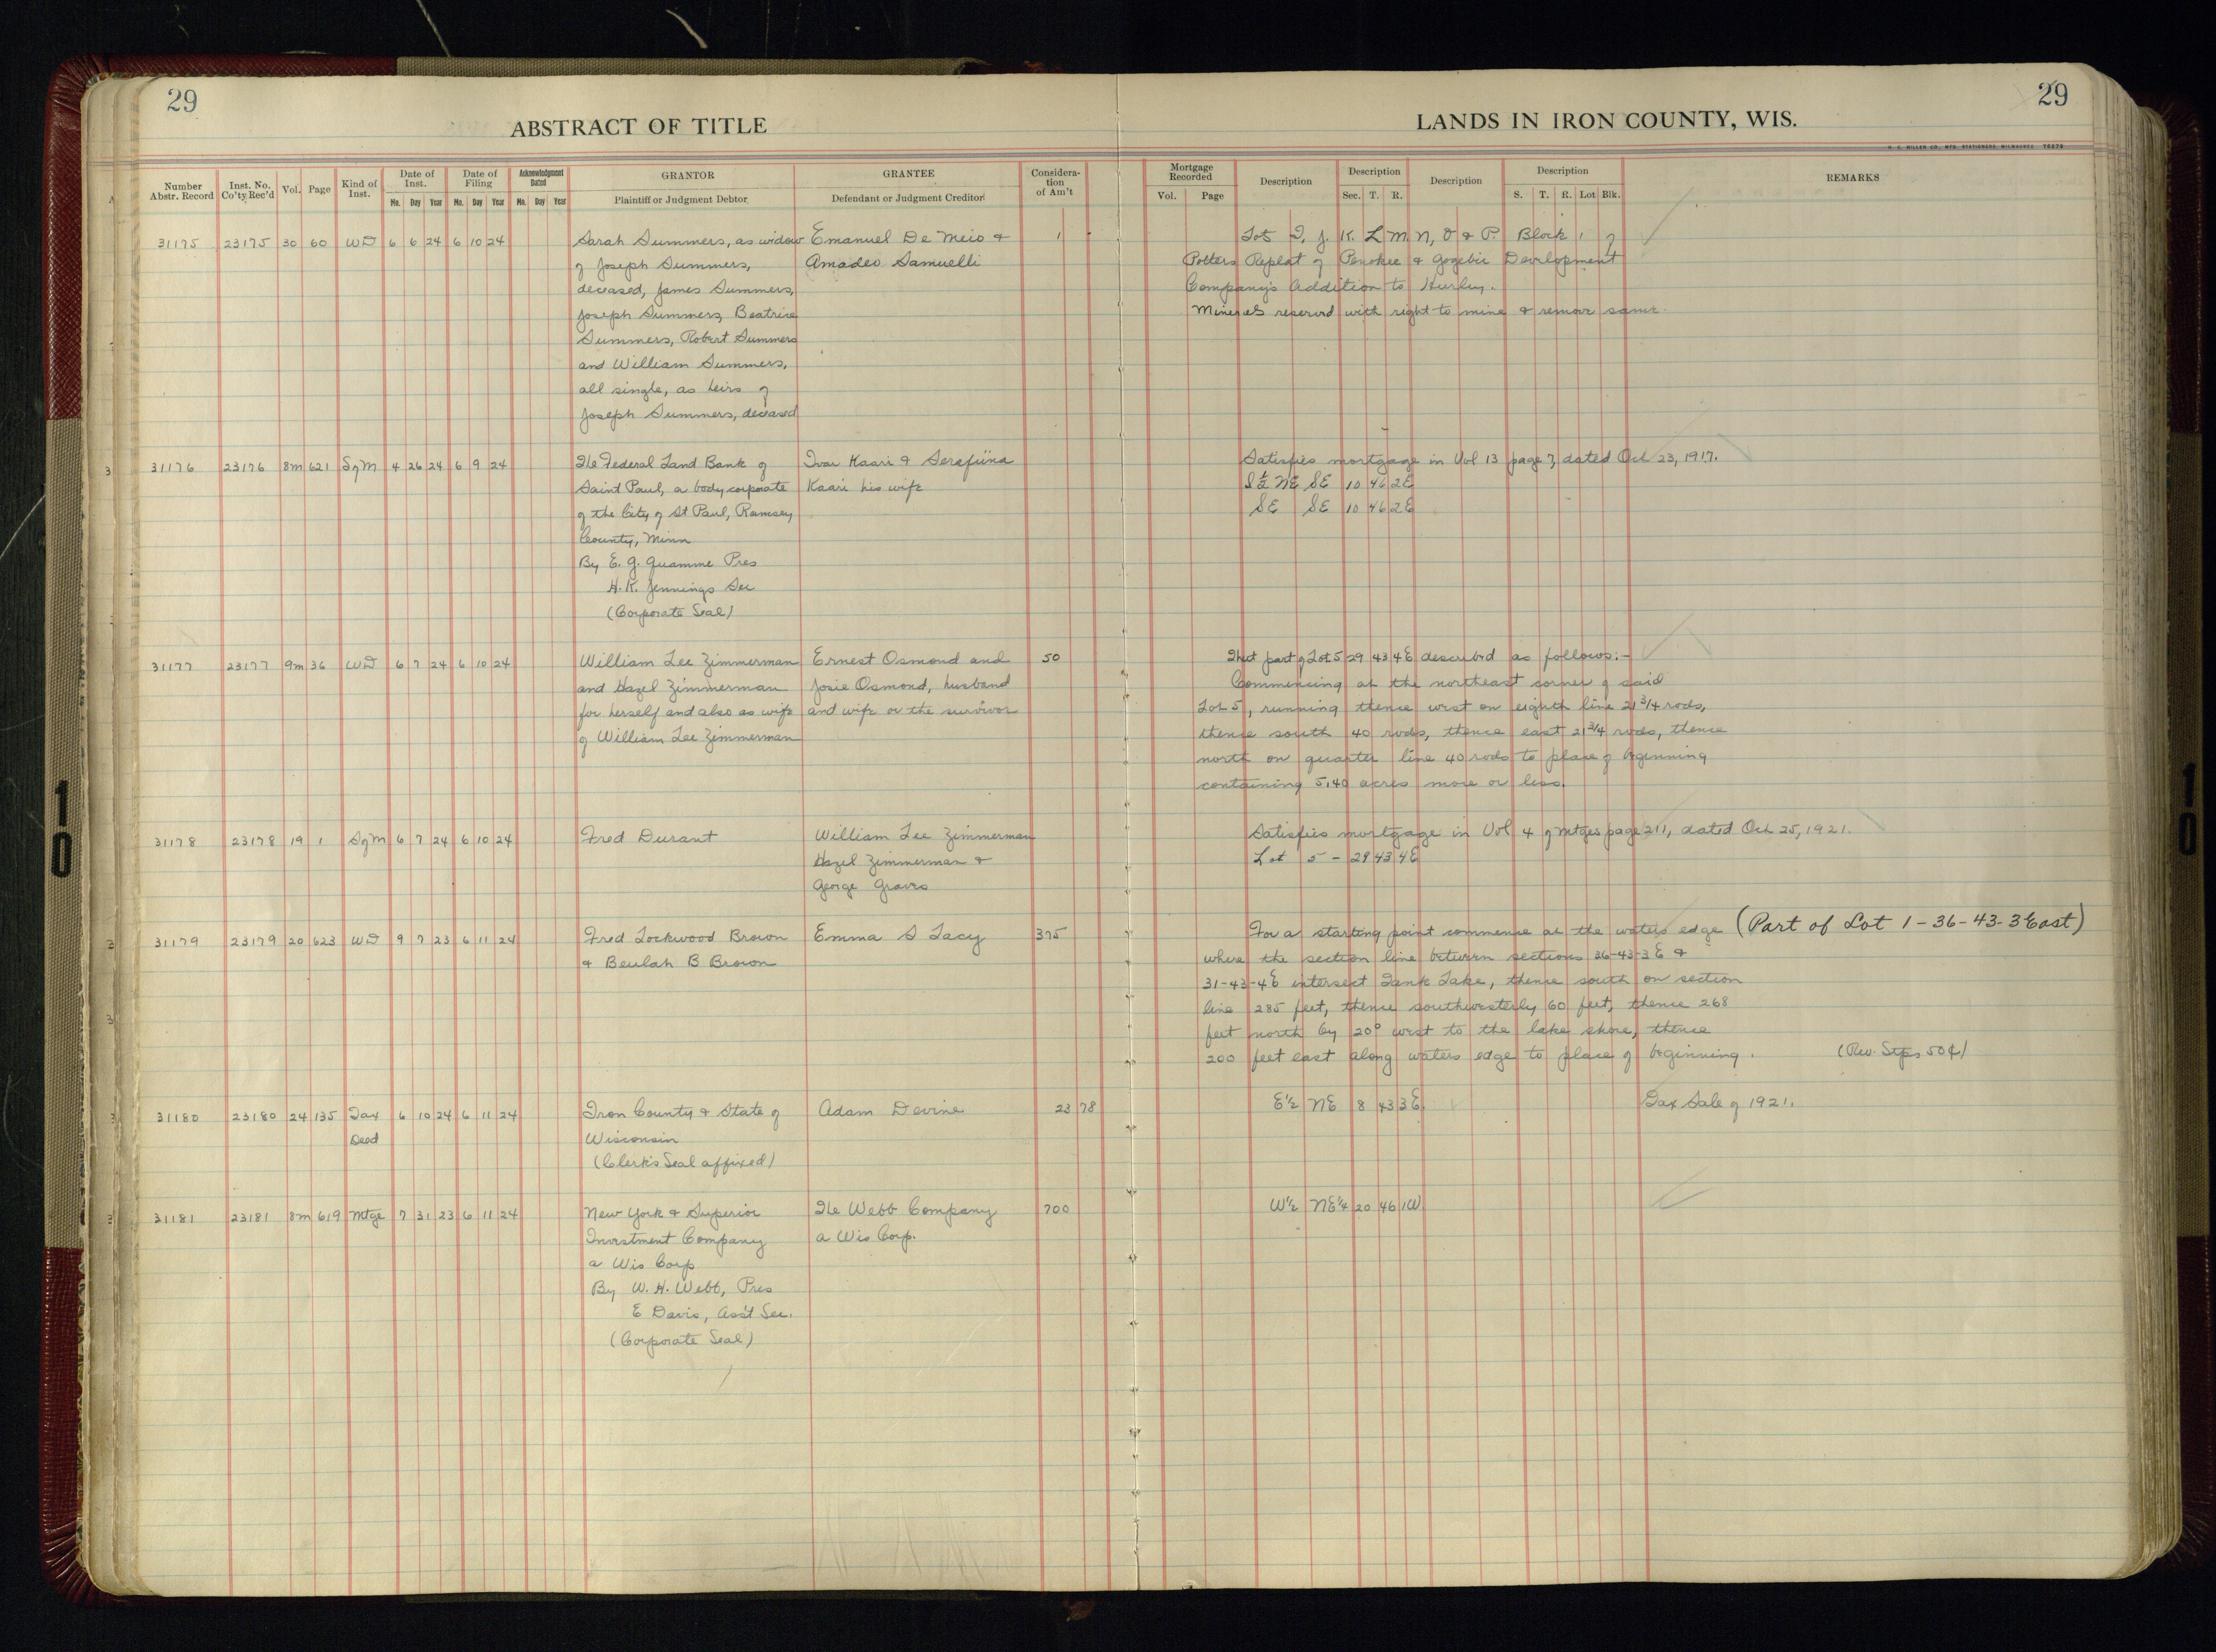 29
29
ABSTRACT OF TITLE
LANDS IN IRON COUNTY, WIS.
H. C. MILLER CO., MFG. STATIONERS, MILWAUKEE
Number Abstr. Record | Inst. No. Co'ty Rec'd | Vol. | Page | Kind of Inst. | Date of Inst. Mo. Day Year | Date of Filing Mo. Day Year | Acknowledgment Dated Mo. Day Year | GRANTOR Plaintiff or Judgment Debtor | GRANTEE Defendant or Judgment Creditor | Consideration of Am't | Mortgage Recorded Vol. Page | Description | Description Sec. T. R. | Description | Description S. T. R. Lot Blk. | REMARKS
31175 23175 30 60 WD 6 6 24 6 10 24 Sarah Summers, as widow Emanuel De Meio & 1 - Lots I, J, K, L M N, O & P. Block 1 of
of Joseph Summers, Amadeo Samuelli Potters Replat of Penokee & Gogebic Development
deceased, James Summers, Company's Addition to Hurley.
Joseph Summers, Beatrice Minerals reserved with right to mine & remove same.
Summers, Robert Summers
and William Summers,
all single, as heirs of
Joseph Summers, deceased
31176 23176 8m 621 SofM 4 26 24 6 9 24 The Federal Land Bank of Ivar Kaari & Serafiina Satisfies mortgage in Vol 13 page 7, dated Oct 23, 1917.
Saint Paul, a body corporate Kaari his wife S½ NE SE 10 46 2E
of the City of St Paul, Ramsey SE SE 10 46 2E
County, Minn
By E. G. Quamme Pres
H. K. Jennings Sec
(Corporate Seal)
31177 23177 9m 36 WD 6 7 24 6 10 24 William Lee Zimmerman Ernest Osmond and 50 That part of Lot 5 29 43 4E described as follows:-
and Hazel Zimmerman Josie Osmond, husband Commencing at the northeast corner of said
for herself and also as wife and wife or the survivor Lot 5, running thence west on eighth line 21 3/4 rods,
of William Lee Zimmerman thence south 40 rods, thence east 21 3/4 rods, thence
north on quarter line 40 rods to place of beginning
containing 5.40 acres more or less.
31178 23178 19 1 SofM 6 7 24 6 10 24 Fred Durant William Lee Zimmerman Satisfies mortgage in Vol 4 of mtges page 211, dated Oct 25, 1921.
Hazel Zimmerman & Lot 5 - 29 43 4E
George Graves
31179 23179 20 623 WD 9 7 23 6 11 24 Fred Lockwood Brown Emma S Lacy 375 For a starting point commence at the waters edge (Part of Lot 1-36-43-3 East)
& Beulah B Brown where the section line between sections 36-43-3E &
31-43-4E intersect Tank Lake, thence south on section
line 285 feet, thence southwesterly 60 feet, thence 268
feet north by 20° west to the lake shore, thence
200 feet east along waters edge to place of beginning. (Rev. Stps 50¢)
31180 23180 24 135 Tax 6 10 24 6 11 24 Iron County & State of Adam Devine 23 78 E½ NE 8 43 3E Tax Sale of 1921.
Deed Wisconsin
(Clerk's Seal affixed)
31181 23181 8m 619 Mtge 7 31 23 6 11 24 New York & Superior The Webb Company 700 W½ NE¼ 20 46 1W
Investment Company a Wis Corp.
a Wis Corp
By W. H. Webb, Pres
E Davis, Ass't Sec.
(Corporate Seal)
10
10